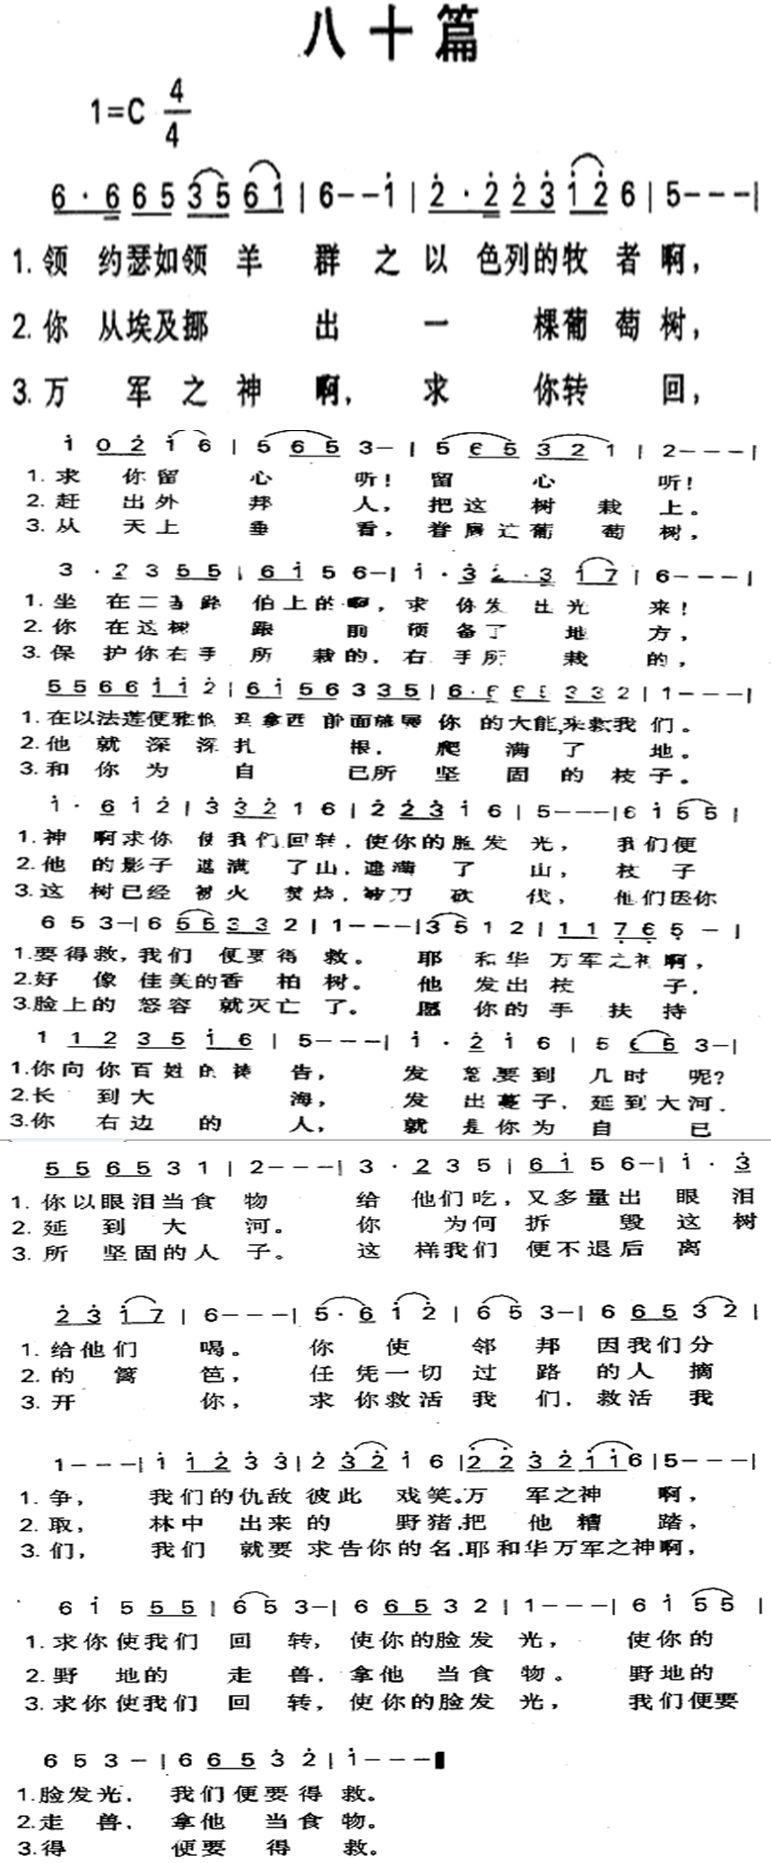 八十篇
1=C 4/4
6·6 65 35 61 | 6--1 | 2·2 23 12 6 | 5---|
1.领 约瑟如领 羊 群 之 以 色列的牧 者 啊,
2.你 从埃及挪 出 一 棵葡 萄 树,
3.万 军 之 神 啊, 求 你转 回,
1 02 1 6 | 5 65 3- | 5 65 32 1 | 2---|
1.求 你留 心 听! 留 心 听!
2.赶 出外 邦 人, 把这 树 栽 上。
3.从 天上 垂 看, 眷 葡 萄 树,
3·2 3 55 | 61 5 6-| 1·3 2·3 17 | 6---|
1.坐 在二 伯上的 啊, 求 你发 出光 来!
2.你 在这树 跟 前 预 备了 地 方,
3.保 护你右手 所 栽的, 右 手所 栽 的,
55 66 11 2 | 61 56 3 35 | 6· 33 2 | 1---|
1.在以法莲便雅 拿西 前面 你 的大能,来救我 们。
2.他 就 深 深扎 根, 爬 满 了 地。
3.和 你 为 自 己所 坚 固 的 枝子。
1·6 1 2 | 3 32 1 6 | 2 23 1 6 | 5---|6 1 55 |
1.神 啊求你 使我们回转,使你的脸发 光, 我们便
2.他 的影子 遮满 了山,遮满 了 山, 枝 子
3.这 树已经 被火 焚烧,被刀 砍 伐, 他们因你
6 5 3-| 6 55 33 2 | 1---|35 1 2 | 11 76 5 - |
1.要得救,我们 便要得 救。 耶 和华 万军之神啊,
2.好 像 佳美的香 柏 树。 他 发出枝 子,
3.脸上的 怒容 就灭亡 了。 愿 你的手 扶 持
1 12 35 16 | 5---| 1·2 1 6 | 5 65 3-|
1.你向你百姓的祷 告, 发 怒,要到 几时 呢?
2.长 到大 海, 发 出蔓子, 延到大河,
3.你 右边 的 人, 就 是你为 自 己
55 65 3 1 | 2---| 3·2 3 5 | 61 5 6-| 1·3
1.你以眼泪当食 物 给 他们吃,又多量出 眼 泪
2.延 到 大 河。 你 为何 拆 毁 这树
3.所 坚固的人 子。 这 样我们 便不退后 离
23 17 | 6---| 5·6 1 2 | 6 5 3-| 6 65 3 2 |
1.给他们 喝。 你 使 邻 邦 因我们分
2.的 篱 笆, 任 凭一切 过 路 的人 摘
3.开 你, 求 你救活 我 们, 救活 我
1---| 1 12 3 3 | 2 32 1 6 | 22 32 116 | 5---|
1.争, 我们的仇敌 彼此 戏笑。万 军之神 啊,
2.取, 林中 出来的 野猪,把 他 糟 踏,
3.们, 我们 就要 求告你的名,耶和华万军之神啊,
6 1 5 55 | 6 5 3-| 6 65 3 2 | 1---| 6 1 5 5 |
1.求你使我们 回 转, 使你的脸发 光, 使你的
2.野 地的 走 兽, 拿他 当食 物。 野地的
3.求你使我们 回 转, 使你的脸发 光, 我们便要
6 5 3 - | 6 65 3 2 | 1---
1.脸发光, 我们便要得 救。
2.走 兽, 拿他 当食 物。
3.得 便要 得 救。